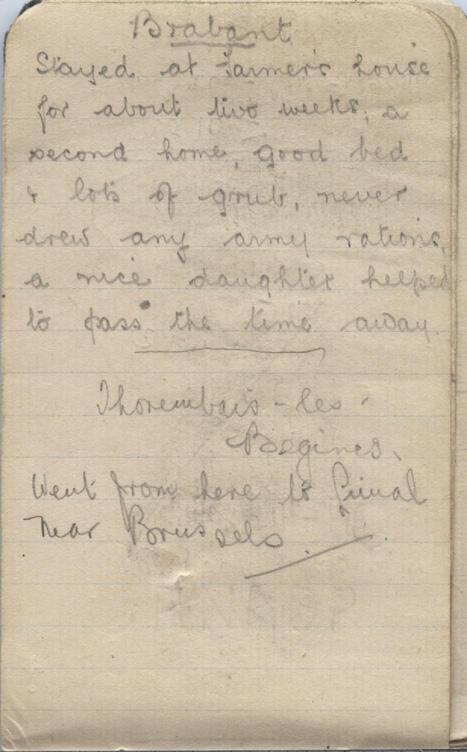 Brabant
Stayed at Farmer's house
for about two weeks, a
second home, good bed
& lots of grub, never
drew any army rations,
a nice daughter helped
to pass the time away.
Thorembais-les-
Begines.
Went from here to
Near Brussels